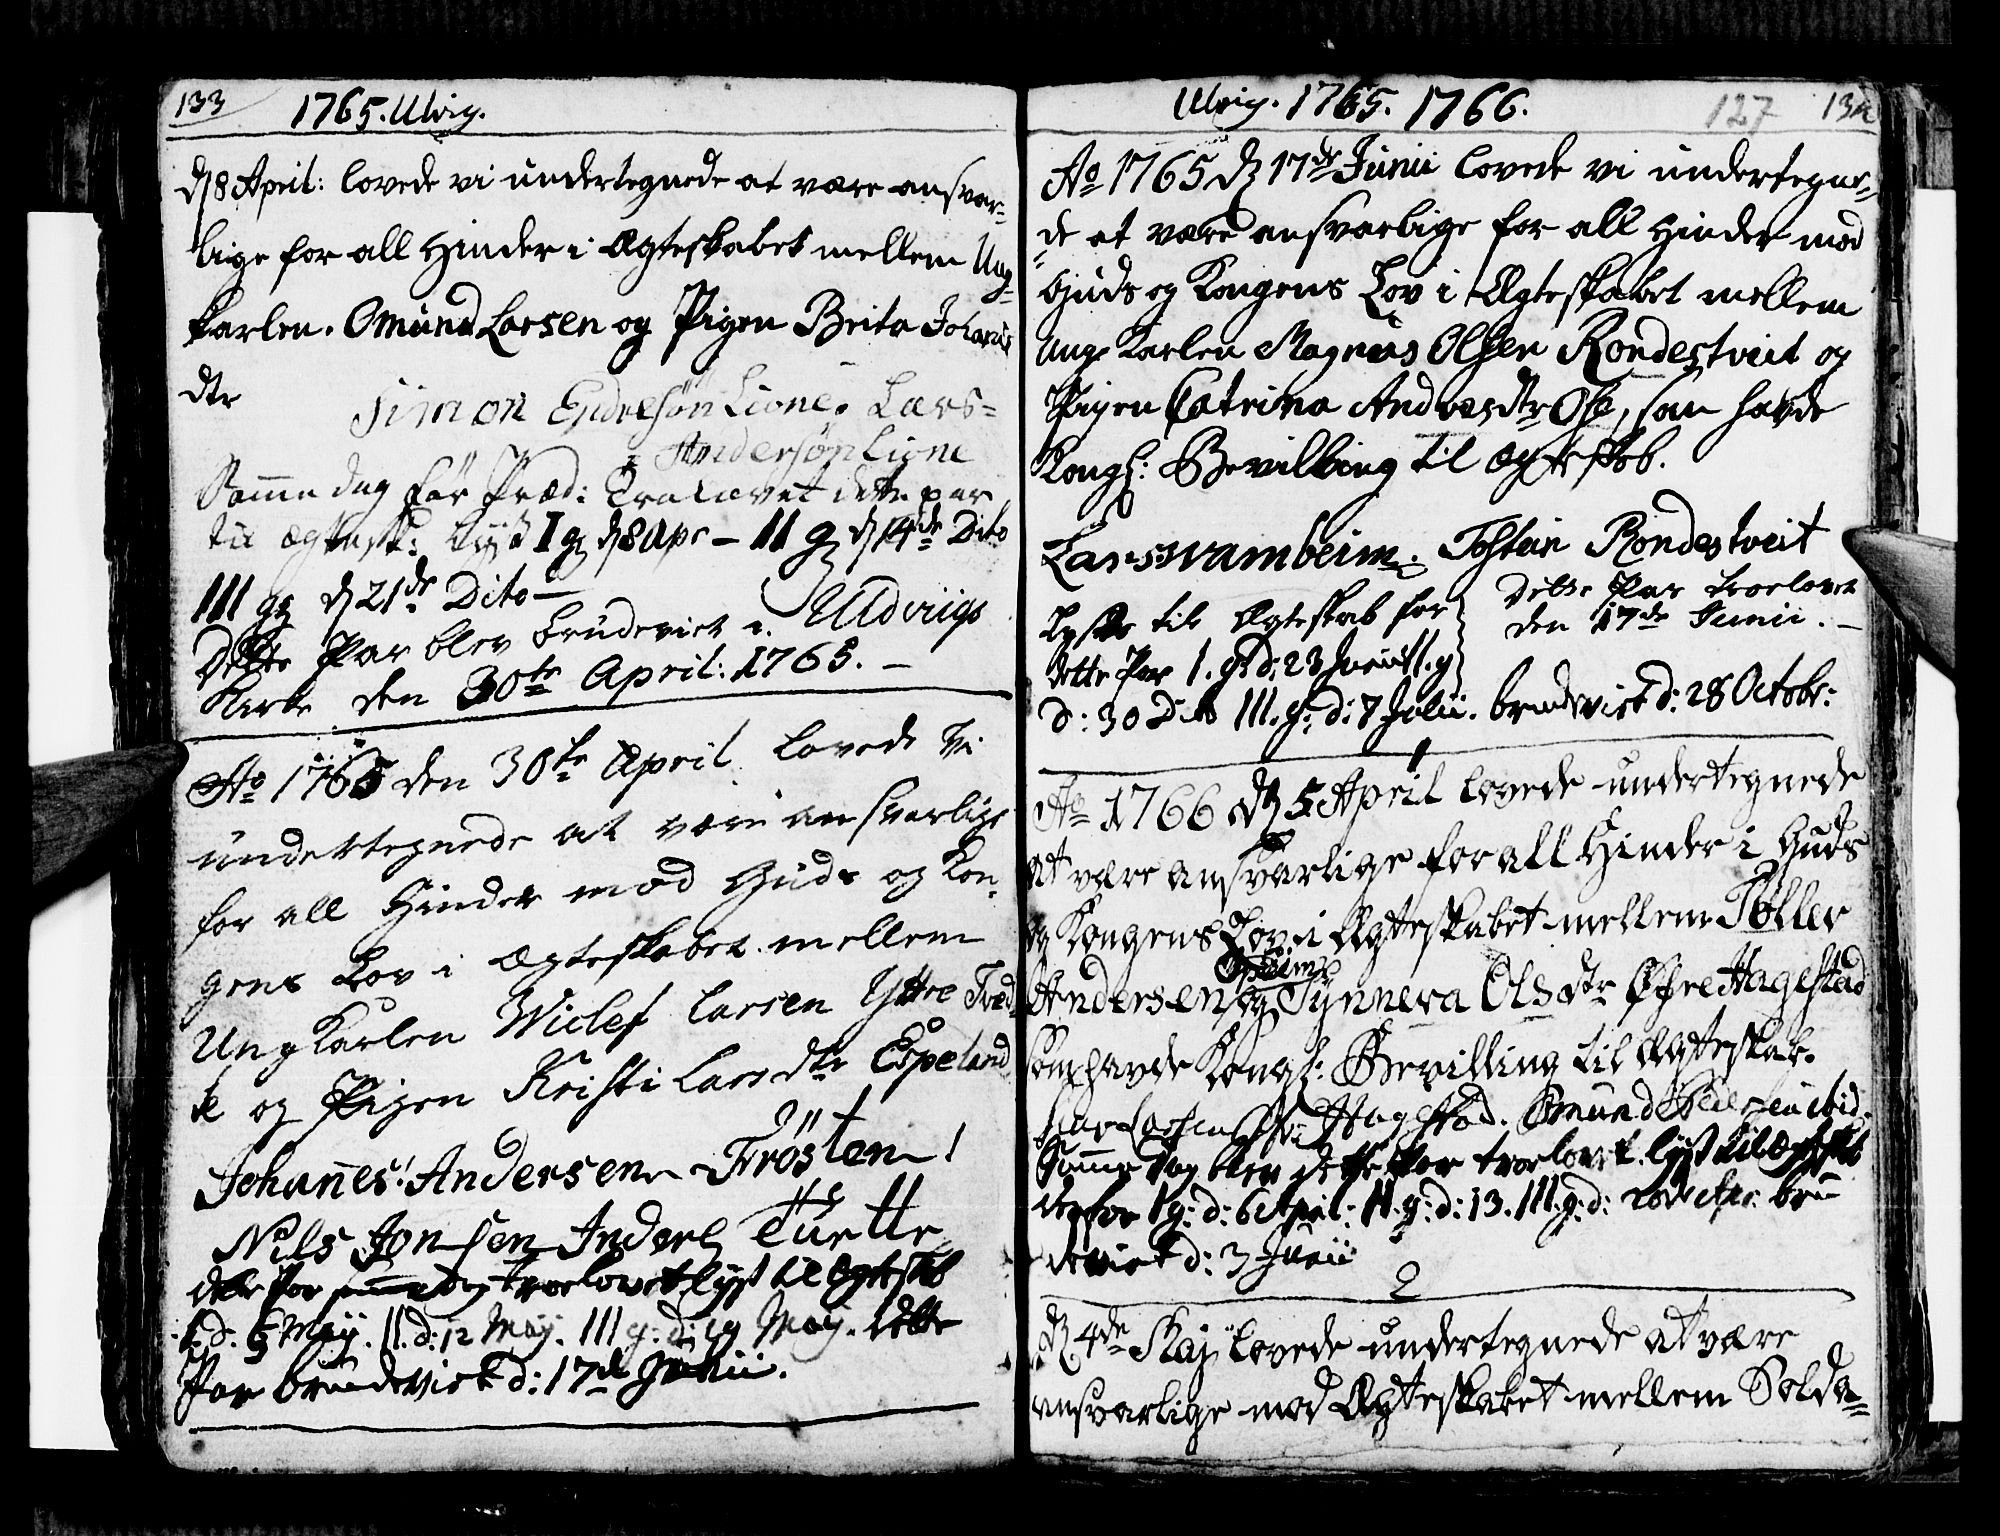 133
1765. Ulvig.
d 8 April: lovede vi undertegnede at være ansvar-
lige for all Hinder i Ægteskabet mellem Ung-
karlen. Omund Larsen og Pigen Brita Johan
dtr
Simon Endresøn Lione. Lars
Andersøn Lione
Samme dag før Præd: Trolovet dette par
til Ægtesk: lyst I g d 8 Apr - II g d 14de Dito
III g d 21de Dito
Dette Par blev brudeviet i Uldvigs
Kirke den 30te April: 1765.
Ao 1765 den 30te April lovede Vi
undertegnede at være ansvarlige
for all Hinder mod Guds og Kon-
gens Lov i Ægteskabet mellem
Ung Karlen Wiclef Larsen Yttre Tved-
te og Pigen Kristi Larsdtr Espeland
Johannes Andersen Trøsten
Nils Jonsen Inderl Tuette
dette Par samme dag troelovet lyst til Ægteskab
I. d. 5 Maij. II. d: 12 Maij. III g: d: 19 Maij. dette
Par brudeviet d: 17de Junii.
Ulvig. 1765. 1766.
127
134
Ao 1765 d 17de Junii lovede vi undertegne-
de at være ansvarlige for all Hinder mod
Guds og Kongens Lov i Ægteskabet mellem
Unge Karlen Magnus Olsen Rondestveit og
Pigen Catrina Andrædtr Ose, som havde
Kongl: Bevilling til Ægteskab.
Lars Svambeim. Tostein Rondestveit
Dette Par troelovet
den 17de Junii.
Lyste til Ægteskab for
dette Par I. g. d: 23 Junii II. g
d: 30 Dito III. g: d: 7 Julii. brudeviet d: 28 Octobr:
1
Ao 1766 d 5 April lovede undertegnede
at være ansvarlige for all Hinder i Guds
og Kongens Lov i Ægteskabet mellem Tøller
Andersen og Synneva Olsdtr Øfre Hagestad
som havde Kongl: Bevilling til Ægteskab.
Larsen Hagestad. Omund Pedersen ibid.
Samme dag blev dette Par troelovet. lyst til Ægteskab
for I g: d: 6 April: II. g: d: 13. III. g: d: 20de Apr: bru
deviet d: 3 Junii
2
d 4de Maij lovede undertegnede at være
ansvarlige mod Ægteskabet mellem Solda-